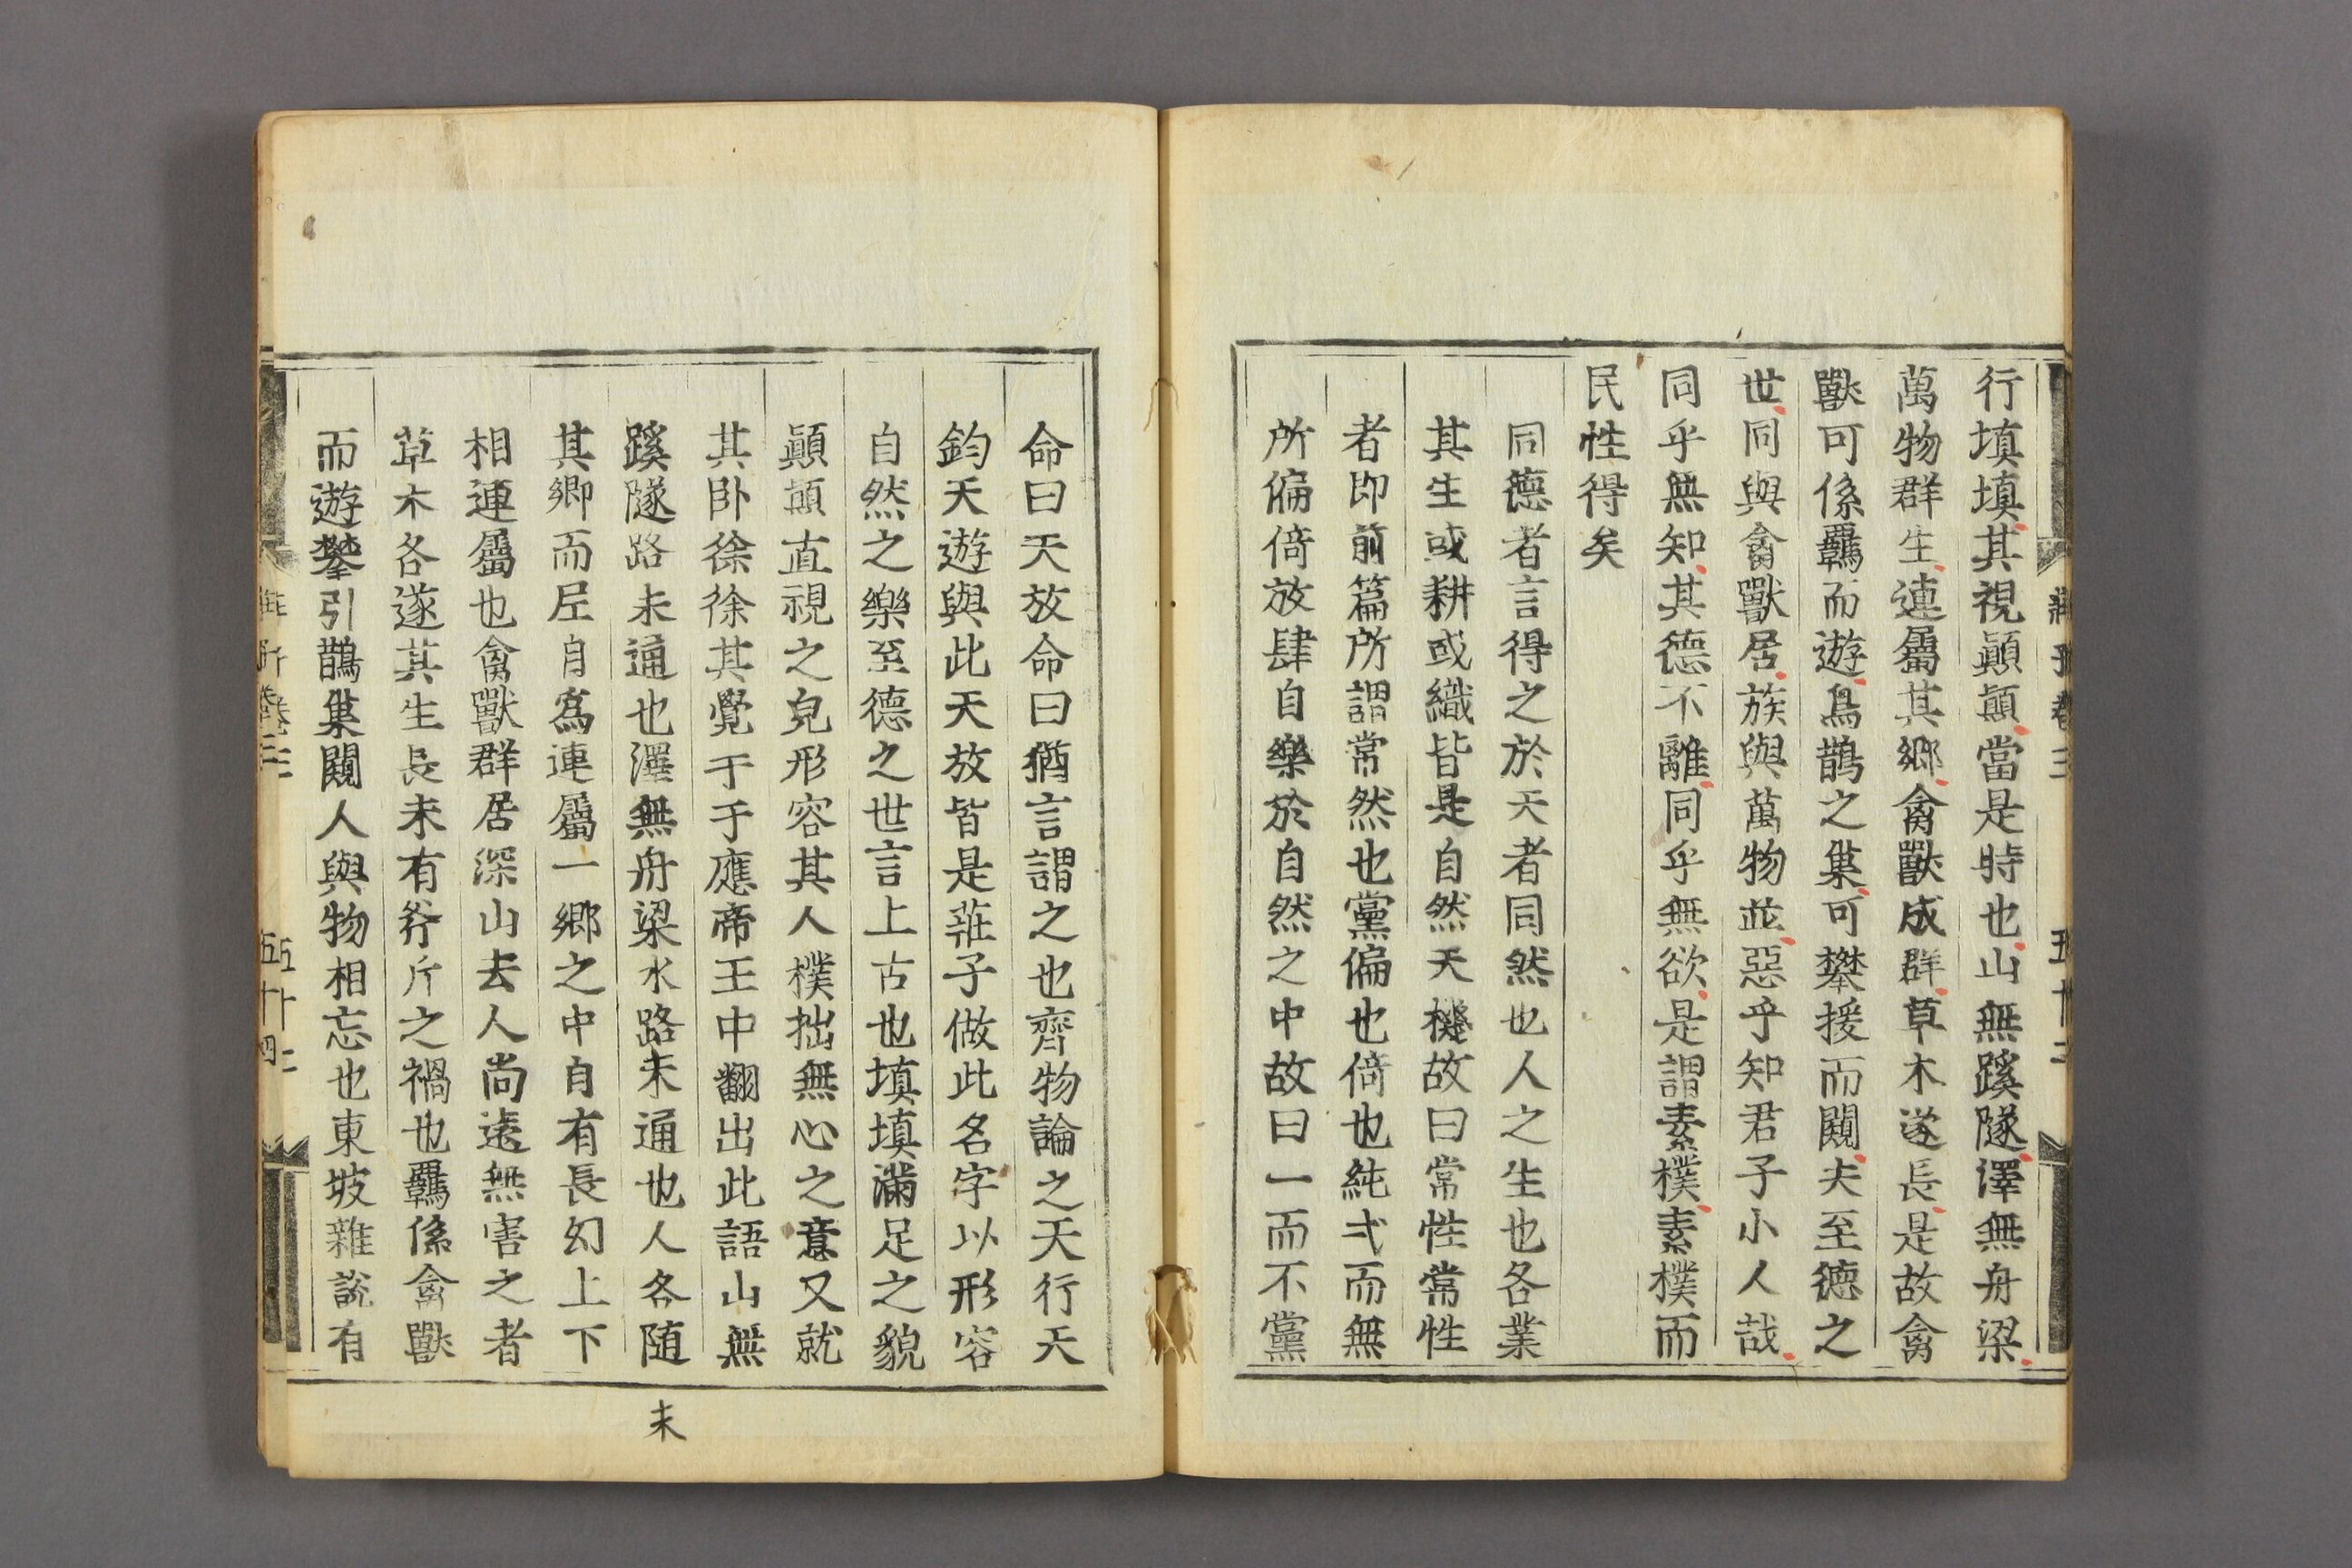 行填填其視顚顚當是時也山無蹊隧澤無舟梁
萬物群生連屬其鄉禽獸成群草木遂長是故禽
獸可係羈而遊鳥鵲之巢可攀援而闚夫至德之
世同與禽獸居族與萬物並惡乎知君子小人哉
同乎無知其德不離同乎無欲是謂素樸素樸而
民性得矣
同德者言得之於天者同然也人之生也各業
其生或耕或織皆是自然天機故曰常性常性
者即前篇所謂常然也黨偏也倚也純弌而無
所偏倚放肆自樂於自然之中故曰一而不黨
命曰天放命曰猶言謂之也齊物論之天行天
鈞天遊與此天放皆是莊子做此名字以形容
自然之樂至德之世言上古也填填滿足之貌
顚顚直視之皃形容其人樸拙無心之意又就
其卧徐徐其覺于于應帝王中翻出此語山無
蹊隧路未通也澤無舟梁水路未通也人各随
其鄉而居自爲連屬一鄉之中自有長幻上下
相連屬也禽獸群居深山去人尚遠無害之者
草木各遂其生長未有斧斤之禍也羈係禽獸
而遊攀引鵲巢闚人與物相忘也東坡雜說有
未